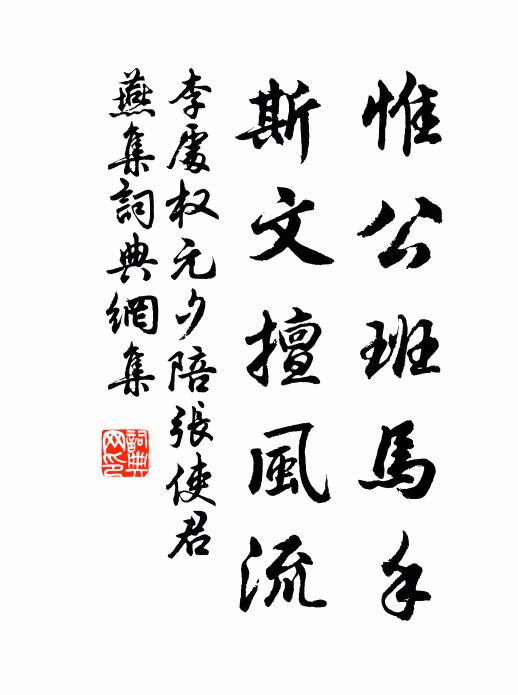 惟公班馬手
斯文擅風流
李處权元夕陪張使君
燕集詞典網集
詞典网印